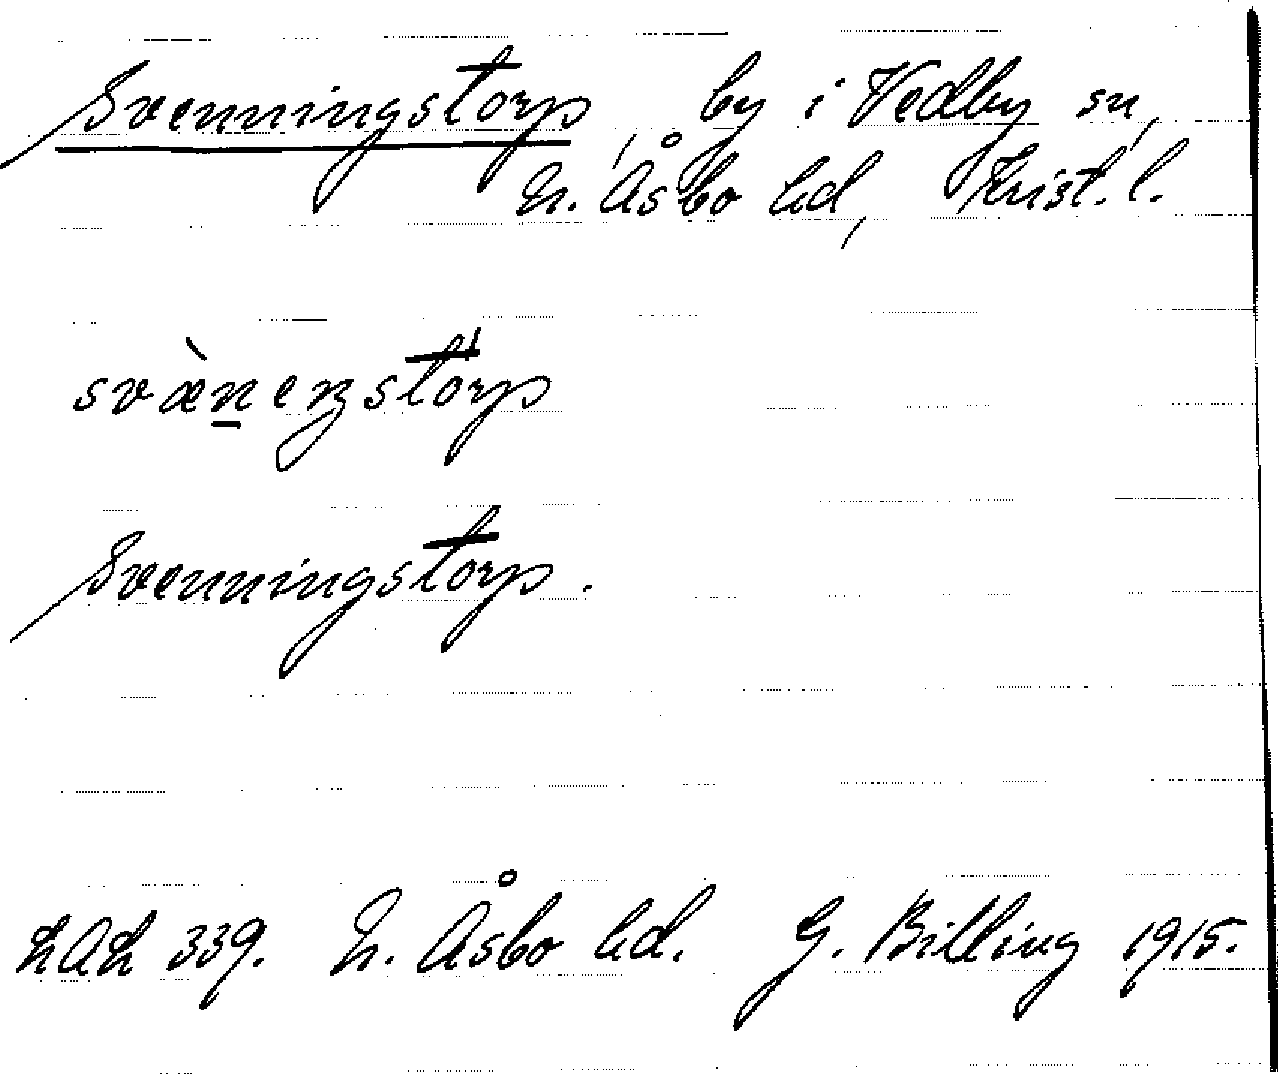 Svenningstorp, by i Vedby sn,
N. Åsbo hd, Krist. l.
svæ̀neŋstorp
Svenningstorp.
LAL 339. N. Åsbo hd. G. Billing 1915.